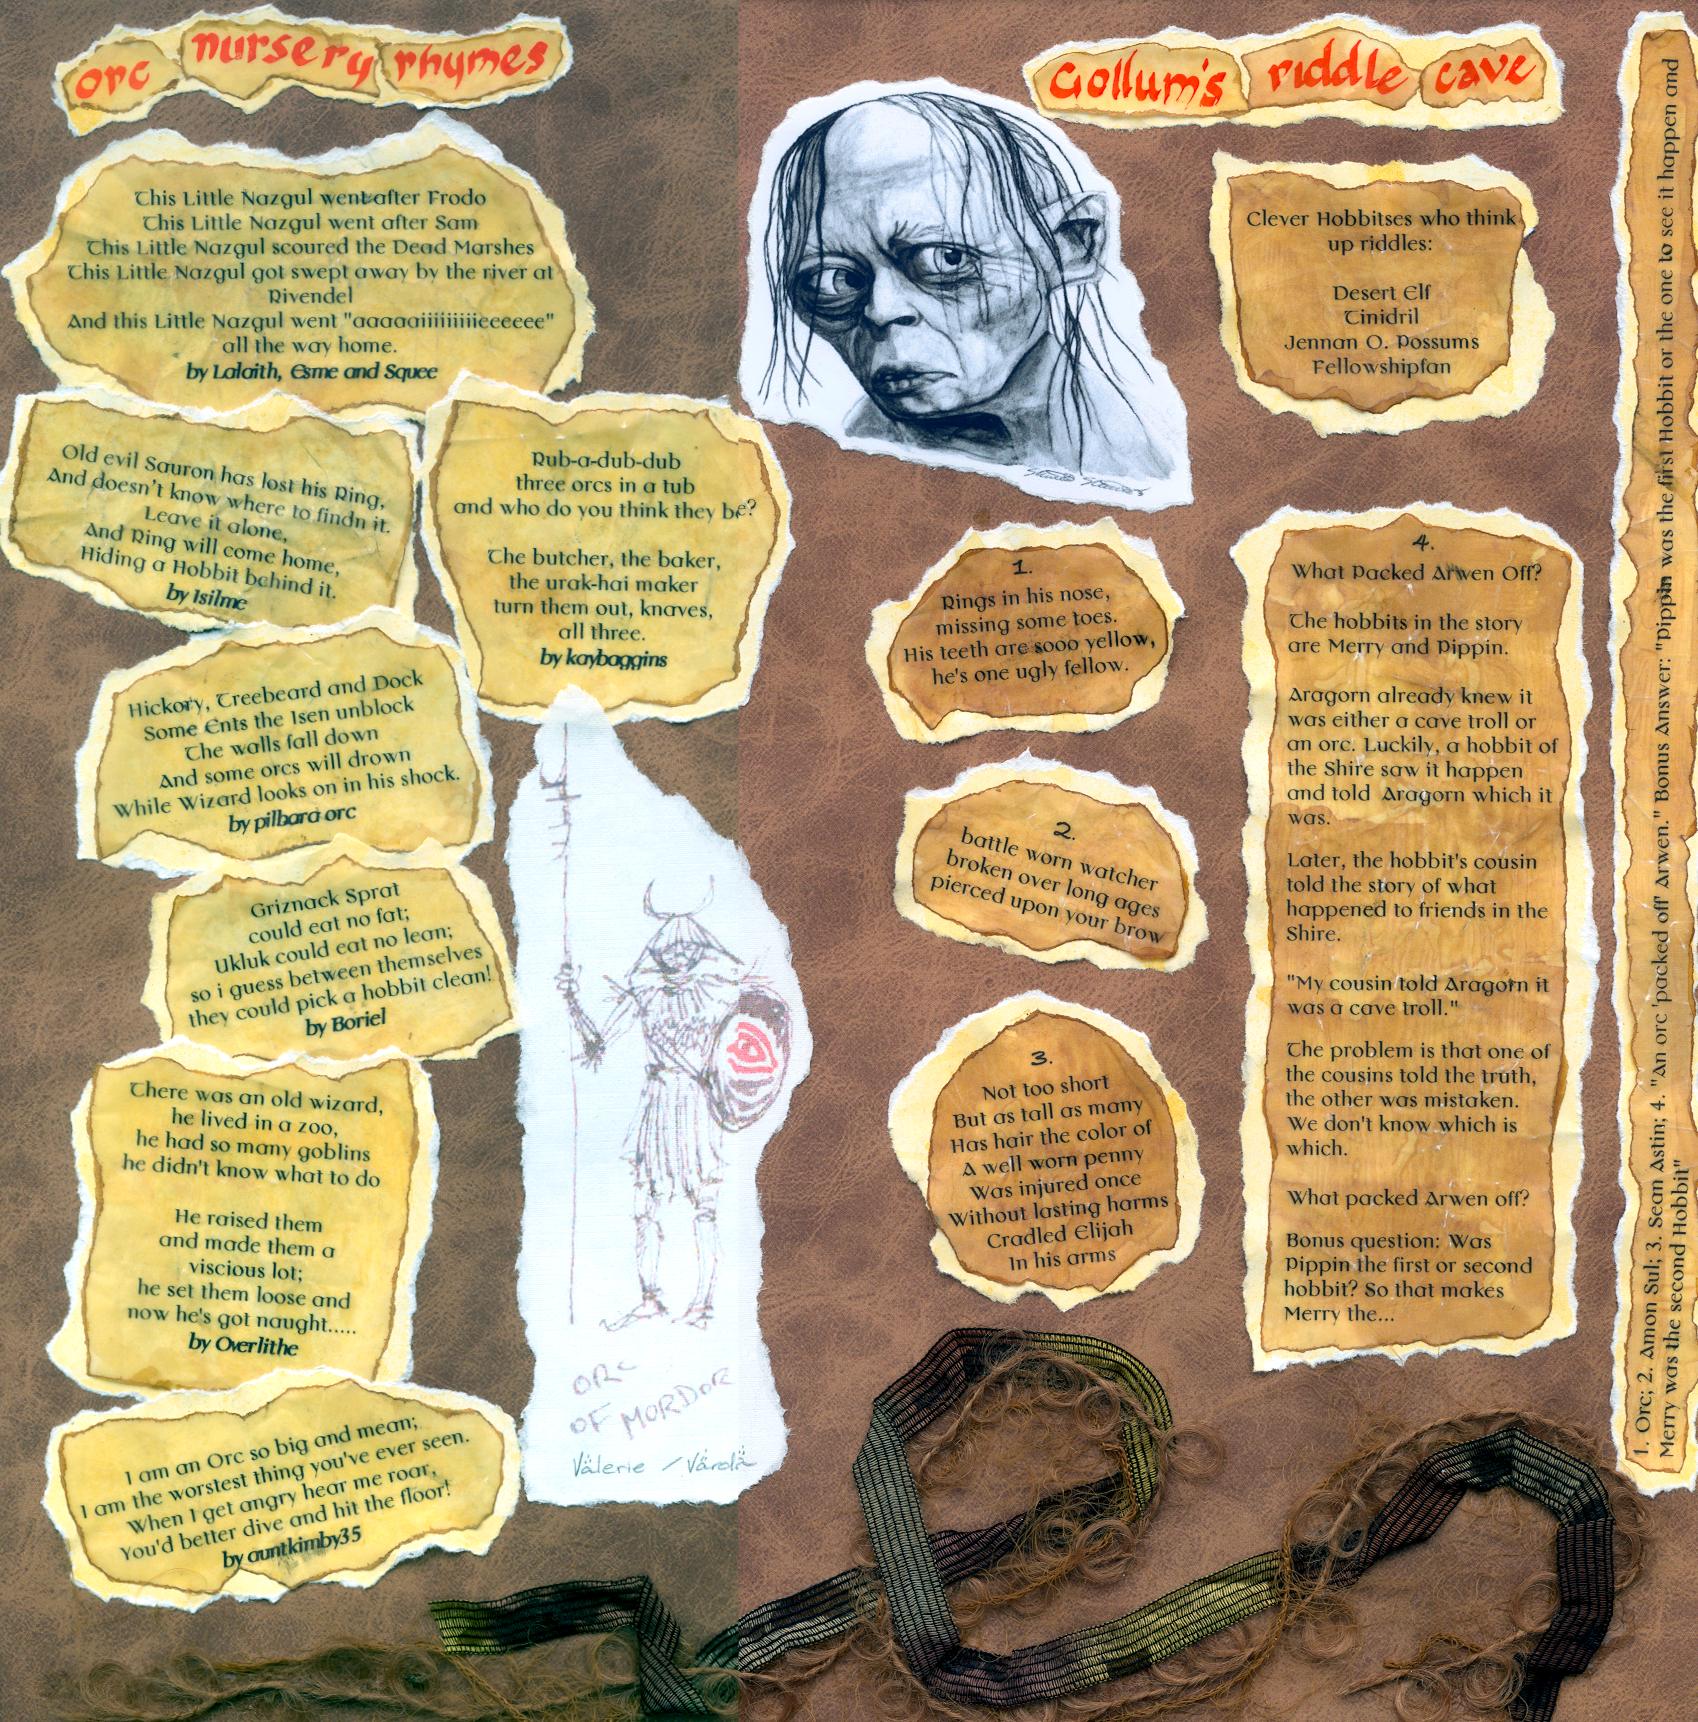 orc nursery rhymes
This Little Nazgul went after Frodo
This Little Nazgul went after Sam
This Little Nazgul scoured the Dead Marshes
This Little Nazgul got swept away by the river at
Rivendel
And this Little Nazgul went "aaaaaiiiiiiiiieeeeee"
all the way home.
by Lalaith, Esme and Squee
Old evil Sauron has lost his Ring,
And doesn't know where to findn it.
Leave it alone,
And Ring will come home,
Hiding a Hobbit behind it.
by Isilme
Rub-a-dub-dub
three orcs in a tub
and who do you think they be?
The butcher, the baker,
the urak-hai maker
turn them out, knaves,
all three.
by kaybaggins
Hickory, Treebeard and Dock
Some Ents the Isen unblock
The walls fall down
And some orcs will drown
While Wizard looks on in his shock.
by pilbara orc
Griznack Sprat
could eat no fat;
Ukluk could eat no lean;
so i guess between themselves
they could pick a hobbit clean!
by Boriel
There was an old wizard,
he lived in a zoo,
he had so many goblins
he didn't know what to do
He raised them
and made them a
viscious lot;
he set them loose and
now he's got naught.....
by Overlithe
I am an Orc so big and mean;
I am the worstest thing you've ever seen.
When I get angry hear me roar,
You'd better dive and hit the floor!
by auntkimby35
ORC
OF MORDOR
Välerie / Värdä
Gollum's riddle cave
Clever Hobbitses who think
up riddles:
Desert Elf
Tinidril
Jennan O. Possums
Fellowshipfan
1.
Rings in his nose,
missing some toes.
His teeth are sooo yellow,
he's one ugly fellow.
2.
battle worn watcher
broken over long ages
pierced upon your brow
3.
Not too short
But as tall as many
Has hair the color of
A well worn penny
Was injured once
Without lasting harms
Cradled Elijah
In his arms
4.
What Packed Arwen Off?
The hobbits in the story
are Merry and Pippin.
Aragorn already knew it
was either a cave troll or
an orc. Luckily, a hobbit of
the Shire saw it happen
and told Aragorn which it
was.
Later, the hobbit's cousin
told the story of what
happened to friends in the
Shire.
"My cousin told Aragorn it
was a cave troll."
The problem is that one of
the cousins told the truth,
the other was mistaken.
We don't know which is
which.
What packed Arwen off?
Bonus question: Was
Pippin the first or second
hobbit? So that makes
Merry the...
1. Orc; 2. Amon Sul; 3. Sean Astin; 4. "An orc 'packed off' Arwen." Bonus Answer: "Pippin was the first Hobbit or the one to see it happen and
Merry was the second Hobbit"